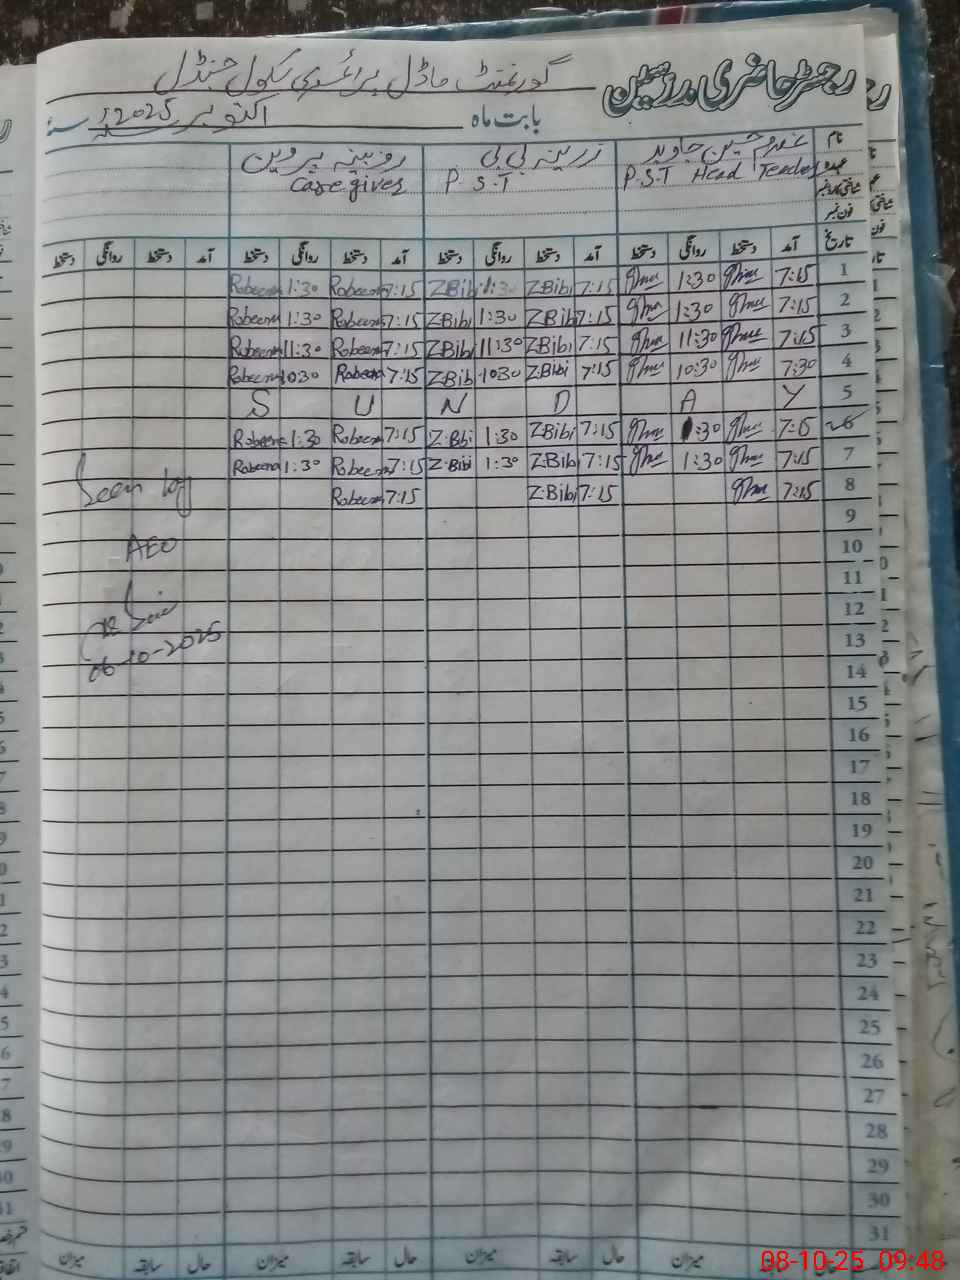 رجسٹر حاضری مدرسین گورنمنٹ ماڈل پرائمری سکول جنڈل
بابت ماہ اکتوبر 2025ء
نام غلام حسین جاوید زرینہ بی بی روبینہ پروین
عہدہ P.S.T Head Teacher P.S.T Care giver
شناختی کارڈ نمبر
فون نمبر
تاریخ آمد دستخط روانگی دستخط آمد دستخط روانگی دستخط آمد دستخط روانگی دستخط آمد دستخط روانگی دستخط
1 7:15 1:30 7:15 Z.Bibi 1:30 Z.Bibi 7:15 Robeena 1:30 Robeena
2 7:15 1:30 7:15 Z.Bibi 1:30 Z.Bibi 7:15 Robeena 1:30 Robeena
3 7:15 11:30 7:15 Z.Bibi 11:30 Z.Bibi 7:15 Robeena 11:30 Robeena
4 7:30 10:30 7:15 Z.Bibi 10:30 Z.Bibi 7:15 Robeena 10:30 Robeena
S U N D A Y 5
6 7:15 :30 7:15 Z.Bibi 1:30 Z.Bibi 7:15 Robeena 1:30 Robeena
7 7:15 1:30 7:15 Z.Bibi 1:30 Z.Bibi 7:15 Robeena 1:30 Robeena
8 7:15 7:15 Z.Bibi 7:15 Robeena
Seen by
9
10
AEO
11
12
13
06-10-2025
14
15
16
17
18
19
20
21
22
23
24
25
26
27
28
29
30
31
حال سابقہ میزان حال سابقہ میزان حال سابقہ میزان
08-10-25 09:48